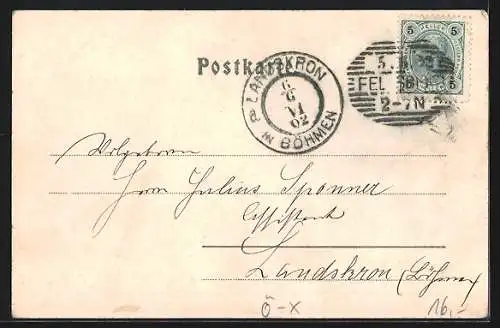 5 5
Postkarte
LANDSKRON
IN BÖHMEN
6
6
VI
02
5
FEL
2-7N
Wolgeboren
Herrn Julius Sponner
Assistent
Landskron (Böhmen)
Ö-X
16,-